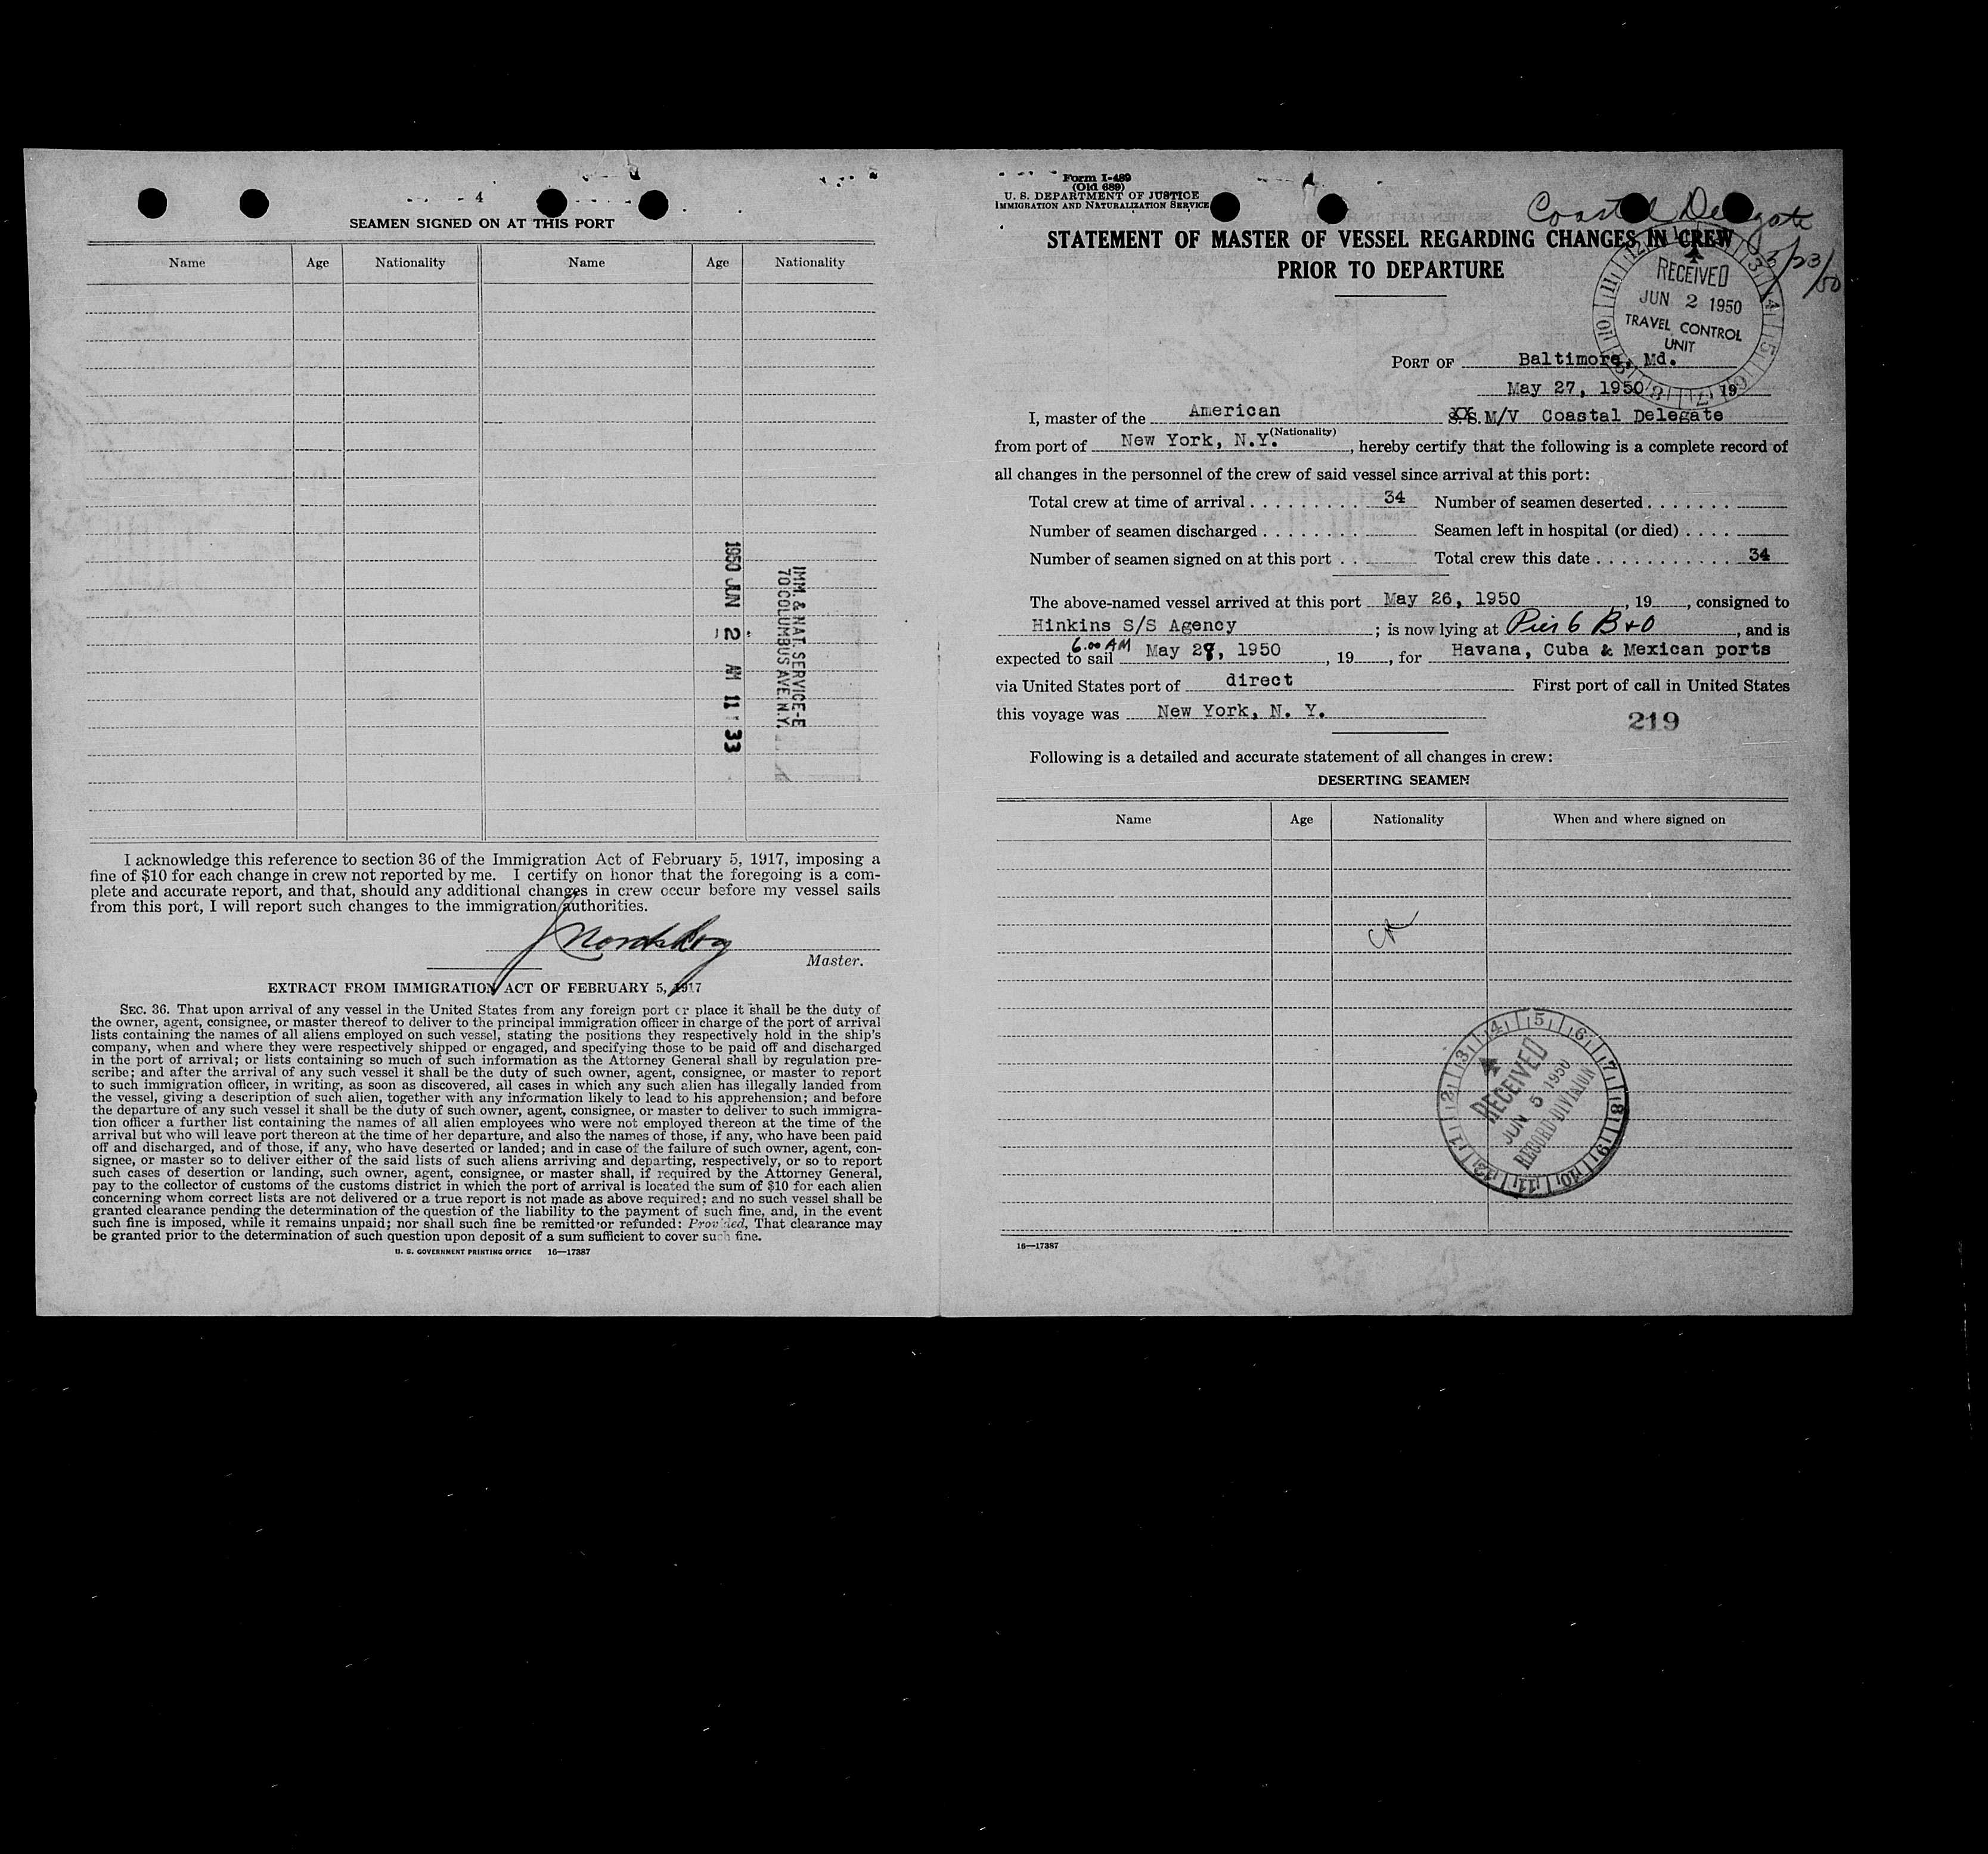 4
SEAMEN SIGNED ON AT THIS PORT
Name Age Nationality Name Age Nationality
1950 JUN 2 AM 11 33
IMM. & NAT. SERVICE-E
70 COLUMBUS AVE. N.Y.
I acknowledge this reference to section 36 of the Immigration Act of February 5, 1917, imposing a
fine of $10 for each change in crew not reported by me. I certify on honor that the foregoing is a com-
plete and accurate report, and that, should any additional changes in crew occur before my vessel sails
from this port, I will report such changes to the immigration authorities.
Master.
EXTRACT FROM IMMIGRATION ACT OF FEBRUARY 5, 1917
SEC. 36. That upon arrival of any vessel in the United States from any foreign port or place it shall be the duty of
the owner, agent, consignee, or master thereof to deliver to the principal immigration officer in charge of the port of arrival
lists containing the names of all aliens employed on such vessel, stating the positions they respectively hold in the ship's
company, when and where they were respectively shipped or engaged, and specifying those to be paid off and discharged
in the port of arrival; or lists containing so much of such information as the Attorney General shall by regulation pre-
scribe; and after the arrival of any such vessel it shall be the duty of such owner, agent, consignee, or master to report
to such immigration officer, in writing, as soon as discovered, all cases in which any such alien has illegally landed from
the vessel, giving a description of such alien, together with any information likely to lead to his apprehension; and before
the departure of any such vessel it shall be the duty of such owner, agent, consignee, or master to deliver to such immigra-
tion officer a further list containing the names of all alien employees who were not employed thereon at the time of the
arrival but who will leave port thereon at the time of her departure, and also the names of those, if any, who have been paid
off and discharged, and of those, if any, who have deserted or landed; and in case of the failure of such owner, agent, con-
signee, or master so to deliver either of the said lists of such aliens arriving and departing, respectively, or so to report
such cases of desertion or landing, such owner, agent, consignee, or master shall, if required by the Attorney General,
pay to the collector of customs of the customs district in which the port of arrival is located the sum of $10 for each alien
concerning whom correct lists are not delivered or a true report is not made as above required; and no such vessel shall be
granted clearance pending the determination of the question of the liability to the payment of such fine, and, in the event
such fine is imposed, while it remains unpaid; nor shall such fine be remitted or refunded: Provided, That clearance may
be granted prior to the determination of such question upon deposit of a sum sufficient to cover such fine.
U. S. GOVERNMENT PRINTING OFFICE 16—17387
Form I-489
(Old 689)
U. S. DEPARTMENT OF JUSTICE
IMMIGRATION AND NATURALIZATION SERVICE
Coastal Delegate
5/23/50
STATEMENT OF MASTER OF VESSEL REGARDING CHANGES IN CREW
PRIOR TO DEPARTURE
RECEIVED
JUN 2 1950
TRAVEL CONTROL
UNIT
PORT OF Baltimore, Md.
May 27, 1950 19
I, master of the American S.S. M/V Coastal Delegate
(Nationality)
from port of New York, N.Y. , hereby certify that the following is a complete record of
all changes in the personnel of the crew of said vessel since arrival at this port:
Total crew at time of arrival . . . . . . . . . 34 Number of seamen deserted . . . . . . .
Number of seamen discharged . . . . . . . . Seamen left in hospital (or died) . . . .
Number of seamen signed on at this port . . Total crew this date . . . . . . . . . . . . 34
The above-named vessel arrived at this port May 26, 1950 , 19 , consigned to
Hinkins S/S Agency ; is now lying at Pier 6 B+O , and is
6.00 AM
expected to sail May 28, 1950 , 19 , for Havana, Cuba & Mexican ports
via United States port of direct First port of call in United States
this voyage was New York, N. Y.
219
Following is a detailed and accurate statement of all changes in crew:
DESERTING SEAMEN
Name Age Nationality When and where signed on
RECEIVED
JUN 5 1950
RECORD DIVISION
16—17387